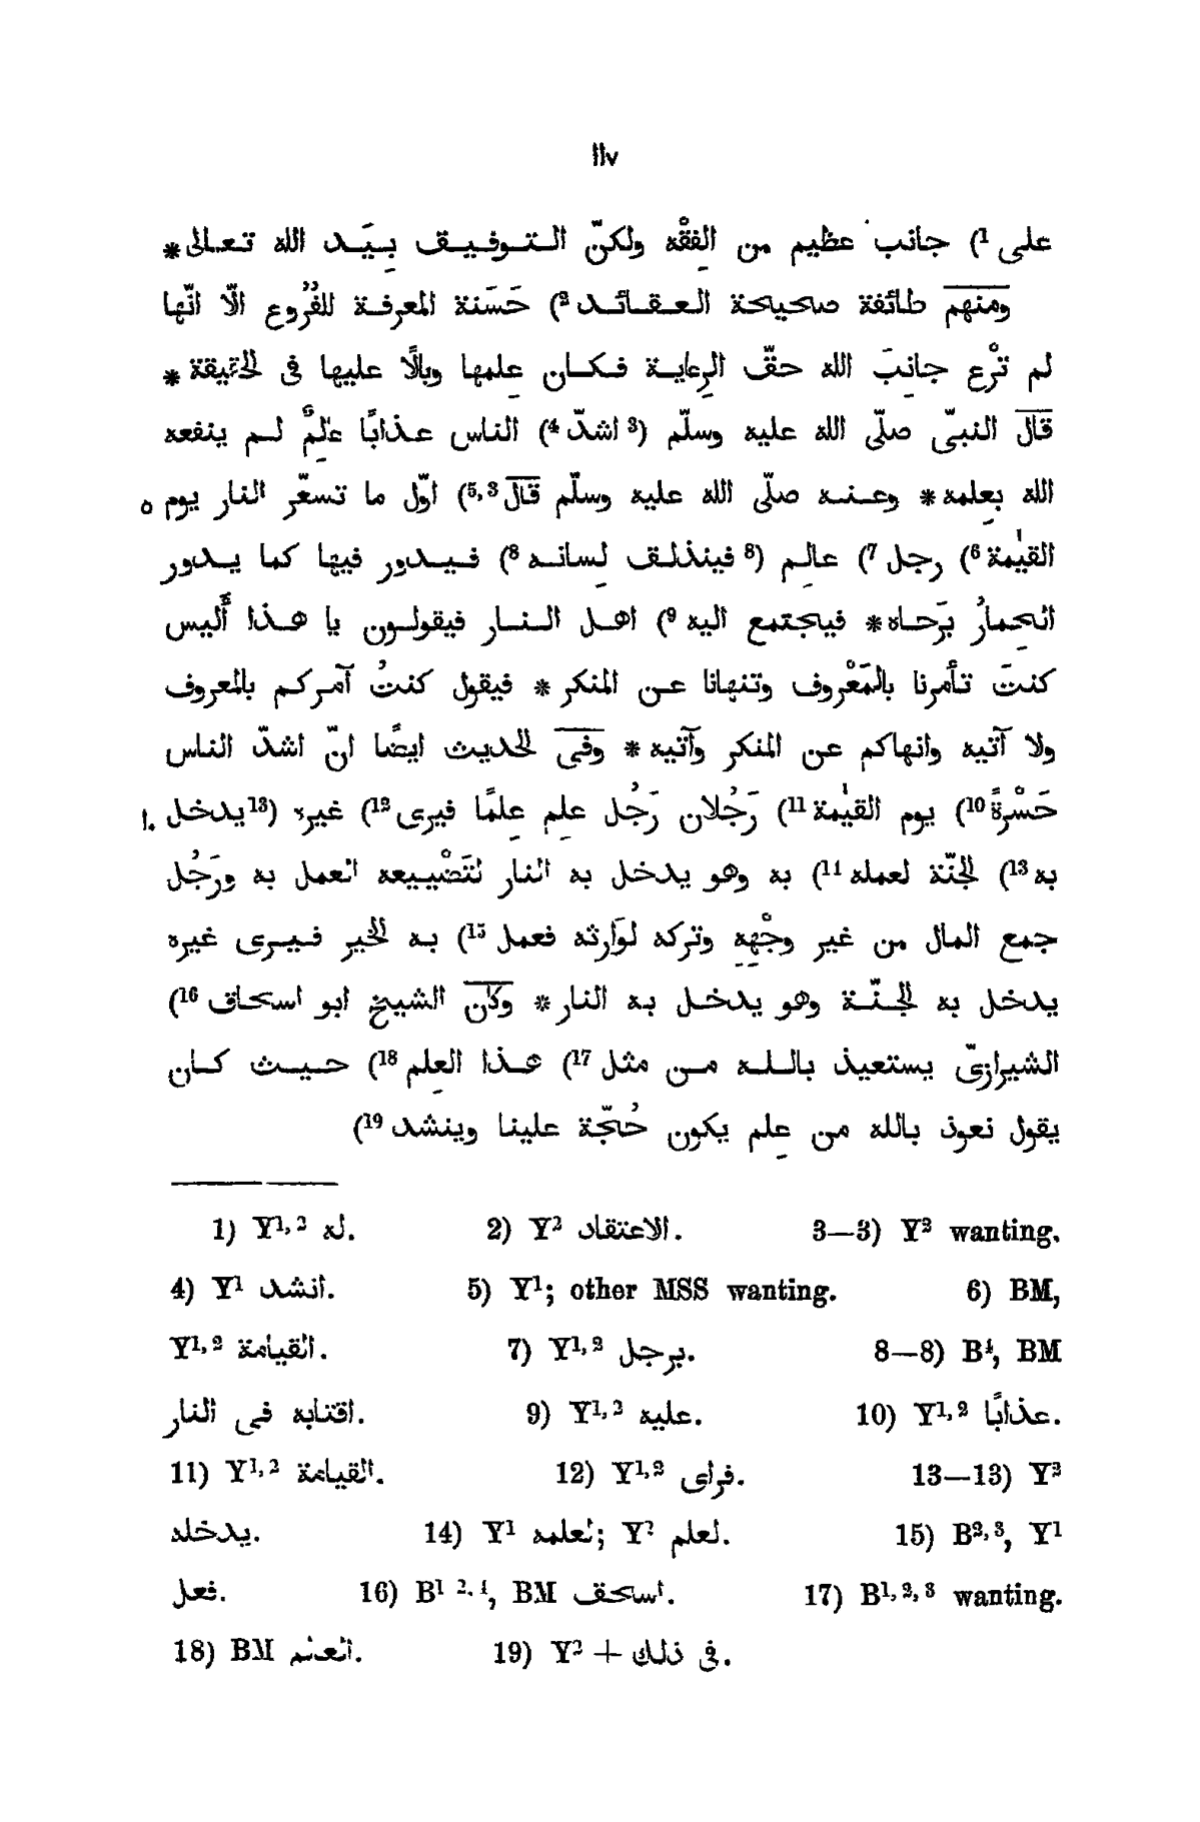 ١١٧
على (1 جانب عظيم من الفِقْه ولكنّ التوفيق بِيَد الله تعالى *
ومنهم طائفة صحيحة العقائد (2 حَسَنة المعرفة للفُرُوع الّا انّها
لم تَرْع جانِبَ الله حقّ الرِعاية فكان عِلمها وبالًا عليها فى الحقيقة *
قال النبىّ صلّى الله عليه وسلّم (3 اشدّ (4 الناس عذابًا عٰالِمٌ لم ينفعه
الله بعِلمه * وعنه صلّى الله عليه وسلّم قال (5,3 اوّل ما تسعّر النار يوم ٥
القيٰمة (6 رجل (7 عالِم (8 فينذلق لِسانه (8 فيدور فيها كما يدور
الحِمارُ بَرَحاه * فيجتمع اليه (9 اهل النار فيقولون يا هذا أَليس
كنتَ تأمرنا بالمَعْروف وتنهانا عن المنكر * فيقول كنتُ آمركم بالمعروف
ولا آتيه وانهاكم عن المنكر وآتيه * وفى الحديث ايضًا انّ اشدّ الناس
حَسْرةً (10 يوم القيٰمة (11 رَجُلان رَجُل علِم عِلمًا فيرى (12 غيره (13 يدخل ١٠
به (13 الجنّة لعمله (14 به وهو يدخل به النار لتَضْييعه العمل به ورَجُل
جمع المال من غير وجْهِهِ وتركه لوَارِثه فعمل (15 به الخير فيرى غيره
يدخل به الجنّة وهو يدخل به النار * وكان الشيخ ابو اسحاق (16
الشيرازىّ يستعيذ بالله من مثل (17 هذا العِلم (18 حيث كان
يقول نعوذ بالله من عِلم يكون حُجّة علينا وينشد (19
1) Y1,2 له. 2) Y2 الاعتقاد. 3—3) Y2 wanting.
4) Y1 انشد. 5) Y1; other MSS wanting. 6) BM,
Y1,2 القيامة. 7) Y1,2 برجل. 8—8) B4, BM
اقتابه فى النار. 9) Y1,2 عليه. 10) Y1,2 عذابًا.
11) Y1,2 القيامة. 12) Y1,2 فراى. 13—13) Y2
يدخله. 14) Y1 لعلمه; Y2 لعلم. 15) B2,3, Y1
فعل. 16) B1 2,4, BM اسحق. 17) B1,2,3 wanting.
18) BM العلم. 19) Y2 + فى ذلك.